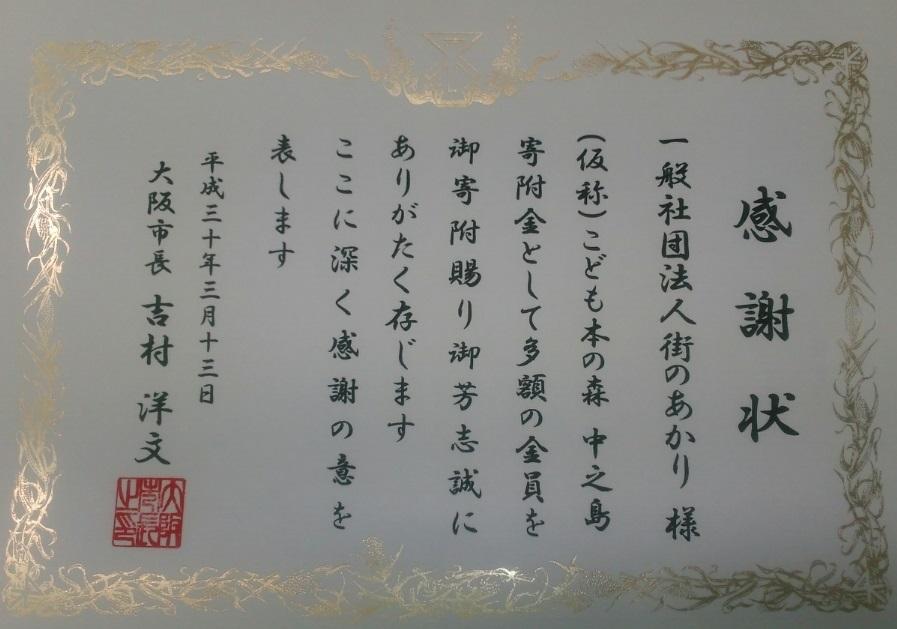 感謝状
一般社団法人街のあかり 様
(仮称)こども本の森 中之島
寄附金として多額の金員を
御寄附賜り御芳志誠に
ありがたく存じます
ここに深く感謝の意を
表します
平成三十年三月十三日
大阪市長 吉村 洋文
大阪市長之印